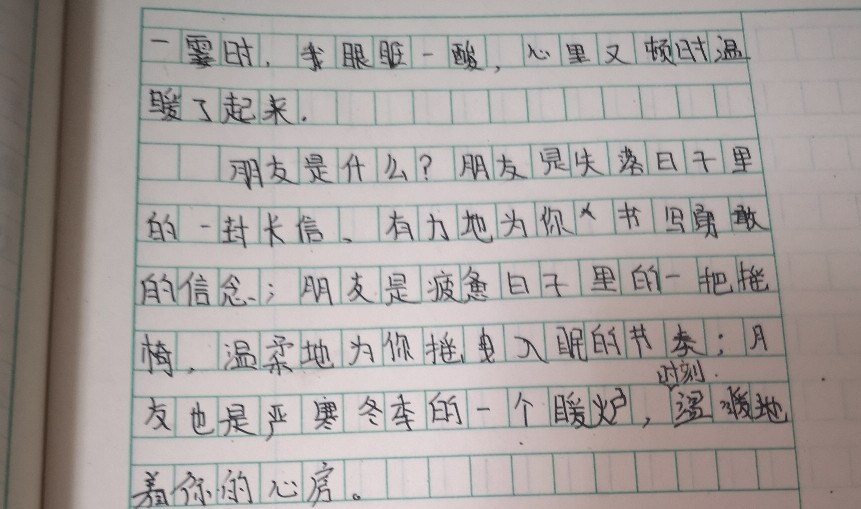 一霎时，我眼眶一酸，心里又顿时温
暖了起来.
朋友是什么？朋友是失落日子里
的一封长信、有力地为你书写勇敢
的信念；朋友是疲惫日子里的一把摇
椅，温柔地为你摇曳入眠的节奏；月
时刻
友也是严寒冬季的一个暖炉，温暖地
着你的心房。